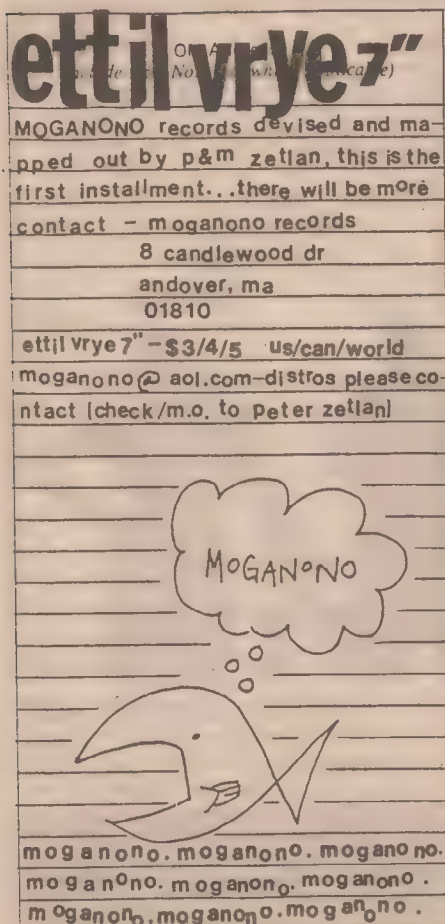 ettil vrye 7"
MOGANONO records devised and ma-
pped out by p&m zetlan, this is the
first installment...there will be more
contact - moganono records
8 candlewood dr
andover, ma
01810
ettil vrye 7" - $3/4/5 us/can/world
moganono@aol.com-distros please co-
ntact (check/m.o. to peter zetlan)
MOGANONO
moganono. moganono. moganono.
moganono. moganono. moganono.
moganono. moganono. moganono.